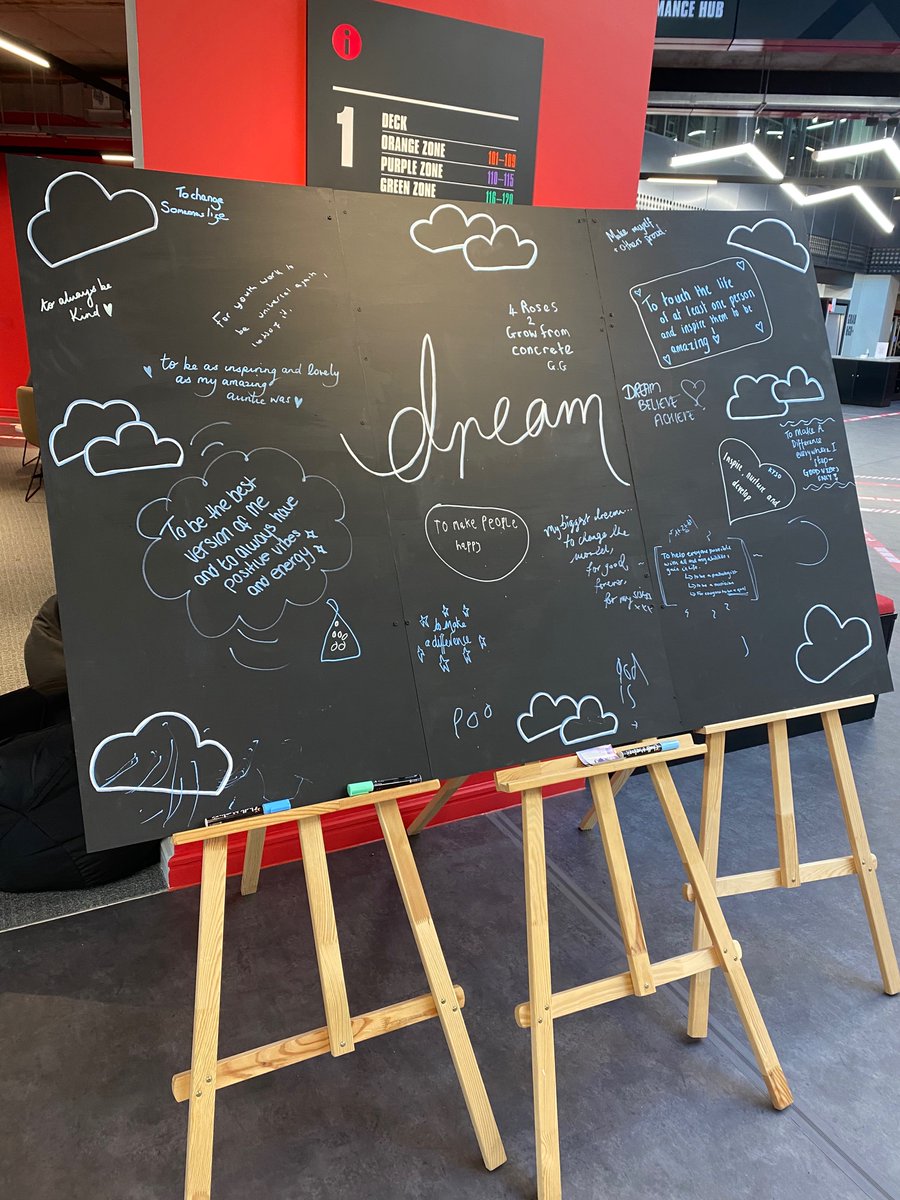 MANCE HUB
i
1
DECK
ORANGE ZONE 101-109
PURPLE ZONE 110-115
GREEN ZONE 116-120
To change
Someones life
to always be
Kind
For youth work to
be universal again
to be as inspiring and lovely
as my amazing
auntie was
To be the best
version of me
and to always have
positive vibes
and energy
4 Roses
2
Grow from
concrete
G.G
dream
To make PEOPLE
happy
My biggest dream..
to change the
world,
for good,
forever.
for my
to make
a difference
Poo
god
is
Make myself
others proud.
To touch the life
of at least one person
and inspire them to be
amazing
DREAM
BELIEVE
ACHIEVE
Inspire, nurture and
develop
To make A
Difference
everywhere I
step-
GOOD VIBES
ONLY!
To help everyone possible
with all my